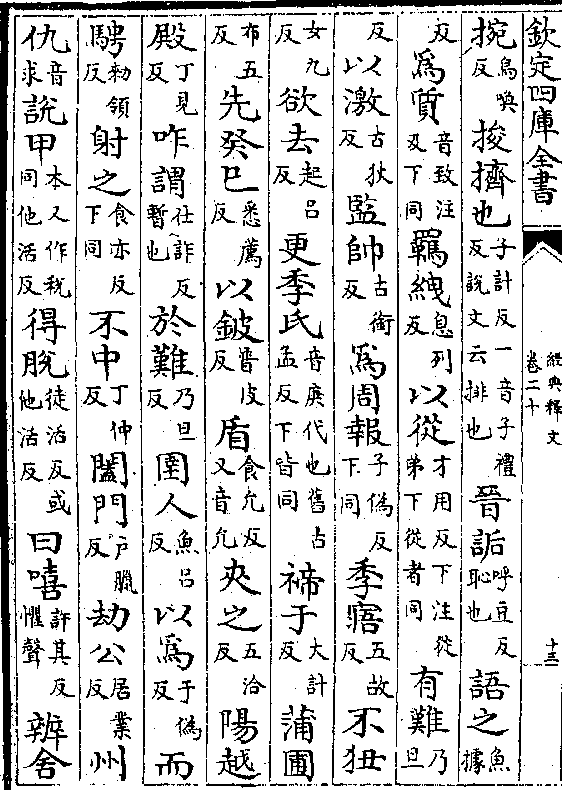 欽定四庫全書 經典釋文 卷二十 十三
捥烏喚反捘擠也子計反一音子禮反說文云排也晉詬呼豆反恥也語之魚據
反爲質音致注及下同羈絏息列反以從才用反下注從弟下從者同有難乃旦
反以激古狄反監帥古銜反爲周報子僞反下同季寤五故反不狃
女九反欲去起呂反更季氏音庚代也舊古孟反下皆同禘于大計反蒲圃
布五反先癸巳悉薦反以鈹普皮反盾食允反又音允夾之五洽反陽越
殿丁見反咋謂仕詐反暫也於難乃旦反圉人魚呂反以爲于僞反而
騁勑領反射之食亦反下同不中丁仲反闔門戶臘反劫公居業反州
仇音求說甲本又作稅同他活反得脫徒活反或他活反曰嘻許其反懼聲辨舍